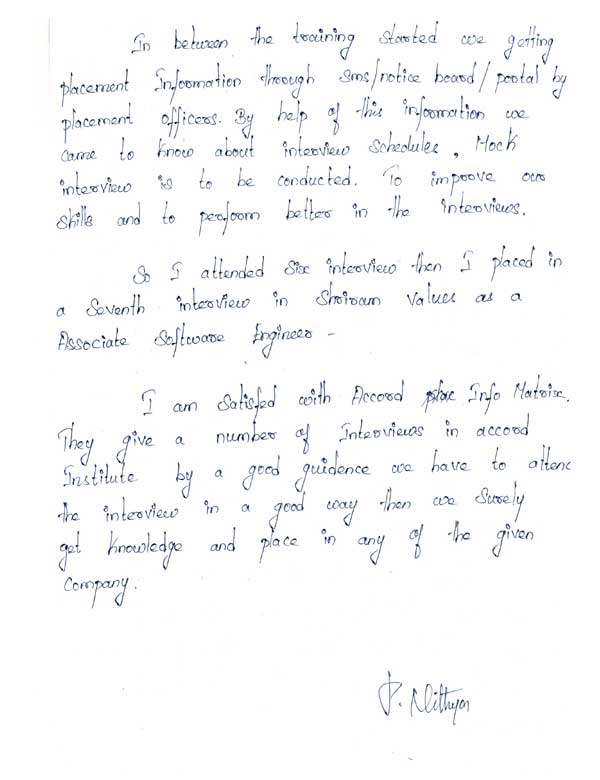 In between the training started we getting
placement Information through sms/notice board/portal by
placement officers. By help of this information we
came to know about interview schedules, Mock
interview is to be conducted. To improve our
skills and to perform better in the interviews.
So I attended six interview then I placed in
a seventh interview in Shriram values as a
Associate Software Engineer -
I am satisfed with Accord Info Matrix.
They give a number of Interviews in accord
Institute by a good guidence we have to attend
the interview in a good way then we surely
get knowledge and place in any of the given
company.
P. Nithya